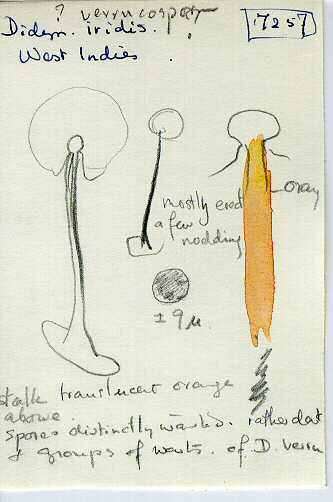 ? verrucospor
Didym. iridis.
7257
West Indies.
mostly erect
a few
nodding
orang
± 9 µ.
stalk translucent orange
above.
spores distinctly warted. rather dark
& groups of warts. of D. verru